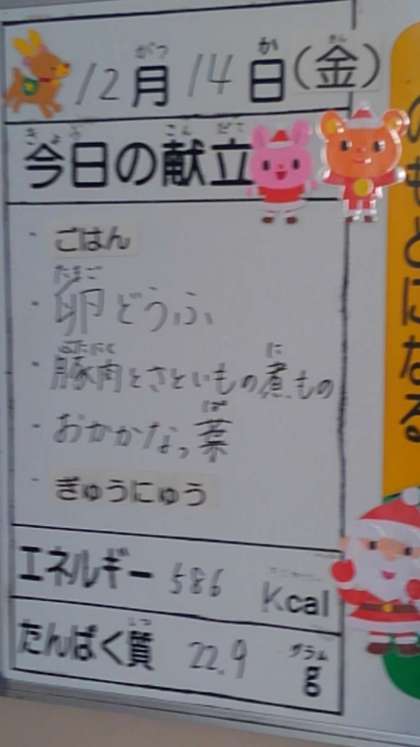 12月14日(金)
今日の献立
・ごはん
・卵どうふ
・豚肉とさといもの煮もの
・おかかなっ葉
・ぎゅうにゅう
エネルギー 586 Kcal
たんぱく質 22.9 g
のもとになる